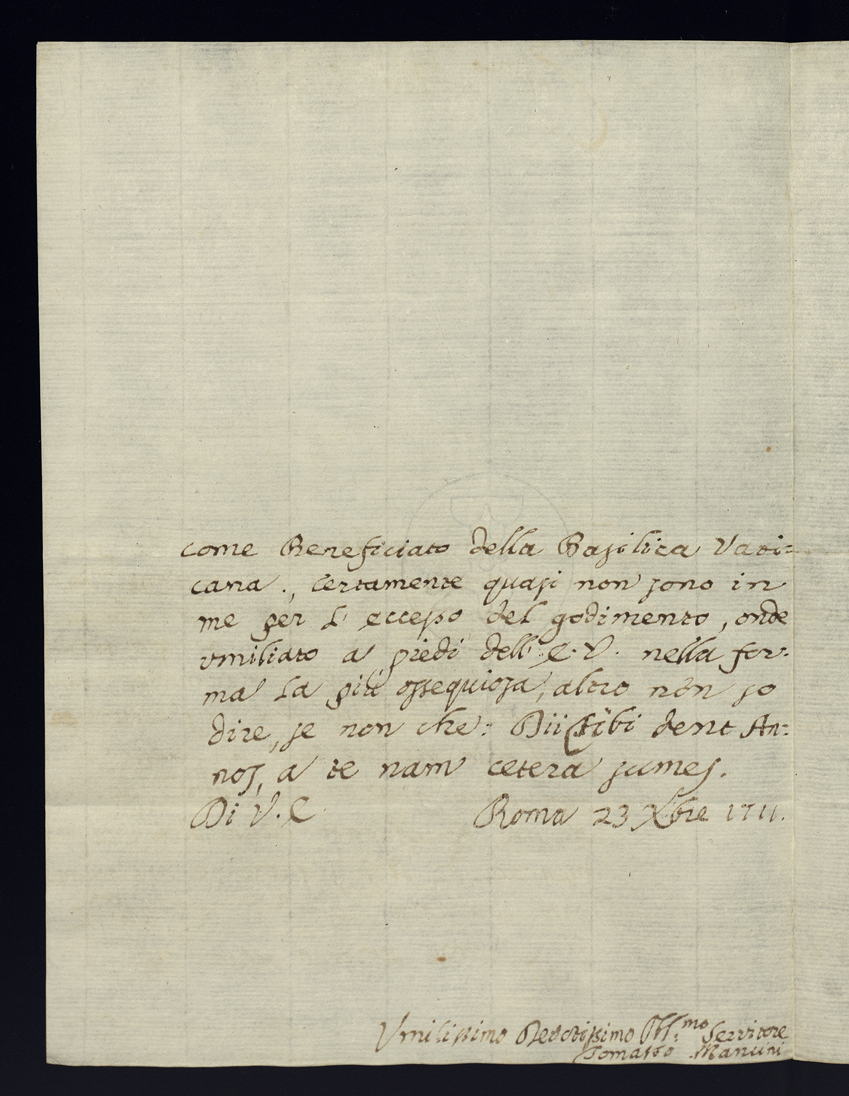 come Beneficiato della Basilica Vati=
cana., Certamente quasi non sono in
me per L' eccesso del godimento, onde
vmiliato a' piedi dell' E. V. nella for=
ma La più ossequiosa, altro non so
dire, se non che: Dii tibi dent An=
nos, a te nam cetera sumes.
Di V. E. Roma 23 Xbre 1711.
Vmilissimo Devotissimo Obb.mo Servitore
Tomasso Mancini